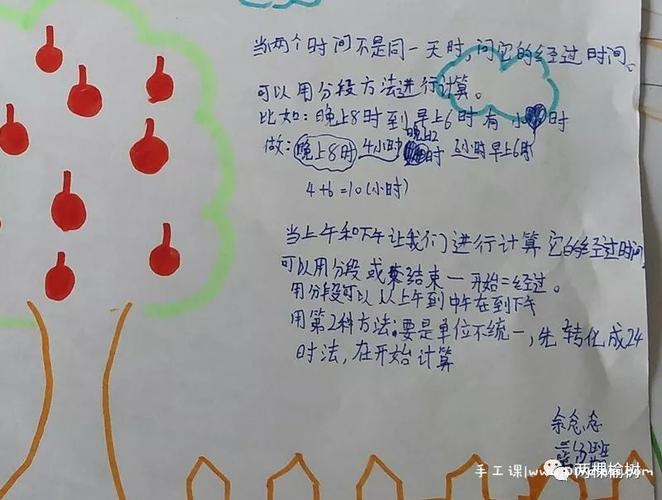 当两个时间不是同一天时,问它的经过时间。
可以用分段方法进行计算。
比如:晚上8时到早上6时有 小时
做:晚上8时 4小时 晚上12时 6小时 早上6时
4+6=10(小时)
当上午和下午让我们进行计算它的经过时间
可以用分段或结束一开始=经过。
用分段可以从上午到中午在到下午
用第2种方法:要是单位不统一,先转化成24
时法,在开始计算
余念念
手工课|www.
两棵榆树